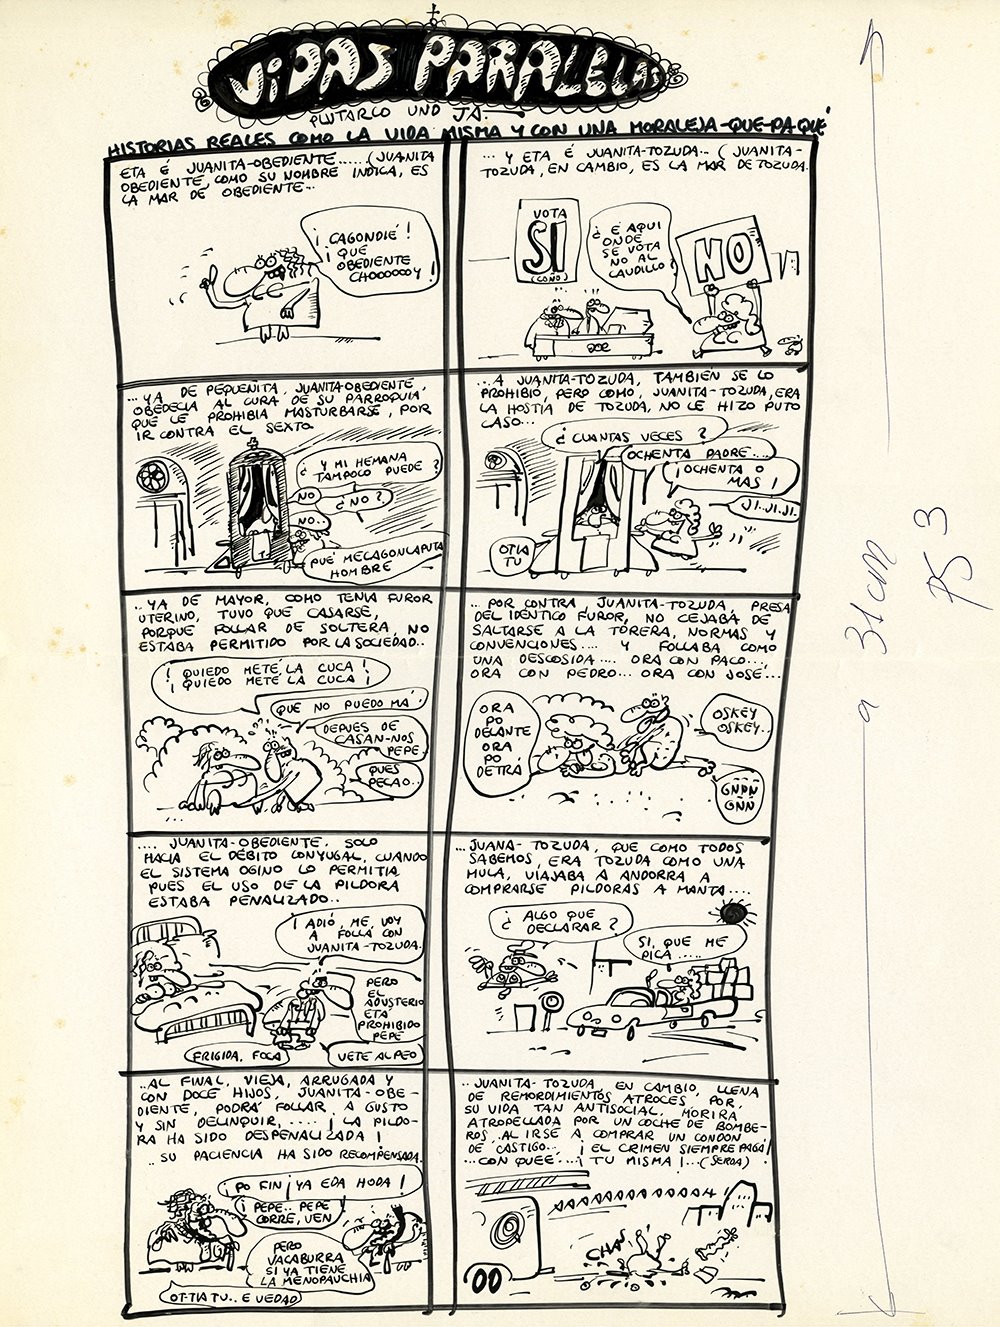 VIDAS PARALELAS
PLUTARCO UNO JA.
HISTORIAS REALES COMO LA VIDA MISMA Y CON UNA MORALEJA-QUE-PA QUÉ
ETA É JUANITA-OBEDIENTE..... (JUANITA
OBEDIENTE, COMO SU NOMBRE INDICA, ES
LA MAR DE OBEDIENTE...
¡ CAGONDIÉ !
¡ QUÉ
OBEDIENTE
CHOOOOOOY !
... Y ETA É JUANITA-TOZUDA... ( JUANITA-
TOZUDA, EN CAMBIO, ES LA MAR DE TOZUDA.
VOTA
SI
(COÑO)
¿ E AQUI
ONDE
SE VOTA
NO AL
CAUDILLO ?
NO
BOE
...YA DE PEQUEÑITA, JUANITA-OBEDIENTE,
OBEDECIA AL CURA DE SU PARROQUIA
QUE LE PROHIBIA MASTURBARSE, POR
IR CONTRA EL SEXTO.
¿ Y MI HEMANA
TAMPOCO PUEDE ?
NO
¿ NO ?
NO..
PUÉ MECAGONLAPUTA
HOMBRE
...A JUANITA-TOZUDA, TAMBIÉN SE LO
PROHIBIO, PERO COMO, JUANITA-TOZUDA, ERA
LA HOSTIA DE TOZUDA, NO LE HIZO PUTO
CASO...
¿ CUANTAS VECES ?
OCHENTA PADRE....
¡ OCHENTA O
MAS !
JI.JI.JI.
OTIA
TU
..YA DE MAYOR, COMO TENIA FUROR
UTERINO, TUVO QUE CASARSE,
PORQUE FOLLAR DE SOLTERA, NO
ESTABA PERMITIDO POR LA SOCIEDAD..
¡ QUIEDO METÉ LA CUCA !
¡ QUIEDO METÉ LA CUCA !
QUE NO PUEDO MÁ
DEPUES DE
CASAN-NOS
PEPE
PUES
PECAO..
... POR CONTRA JUANITA-TOZUDA, PRESA
DEL IDENTICO FUROR, NO CEJABA DE
SALTARSE A LA TORERA, NORMAS Y
CONVENCIONES.... Y FOLLABA COMO
UNA DESCOSIDA.... ORA CON PACO...,
ORA CON PEDRO... ORA CON JOSÉ...
ORA
PO
DELANTE
ORA
PO
DETRÁ
OSKEY
OSKEY..
GÑÑÑ
GÑÑ
.... JUANITA-OBEDIENTE, SOLO
HACIA EL DÉBITO CONYUGAL, CUANDO
EL SISTEMA OGINO LO PERMITIA
PUES EL USO DE LA PILDORA
ESTABA PENALIZADO..
¡ ADIÓ, ME VOY
A FOLLÁ CON
JUANITA-TOZUDA.
PERO
EL
ADUSTERIO
ETÁ
PROHIBIDO
PEPE
FRIGIDA, FOCA
VETE AL PEO
...JUANA-TOZUDA, QUE COMO TODOS
SABEMOS, ERA TOZUDA COMO UNA
MULA, VIAJABA A ANDORRA A
COMPRARSE PILDORAS A MANTA....
¿ ALGO QUE
DECLARAR ?
SI, QUE ME
PICA .....
..AL FINAL, VIEJA, ARRUGADA Y
CON DOCE HIJOS, JUANITA-OBE-
DIENTE, PODRÁ FOLLAR A GUSTO
Y SIN DELINQUIR,.... ¡ LA PILDO-
RA HA SIDO DESPENALIZADA !
.. SU PACIENCIA HA SIDO RECOMPENSADA.
¡ PO FIN ¡ YA EDA HODA !
¡ PEPE.. PEPE
CORRE, VEN !
PERO
VACABURRA
SI YA TIENE
LA MENOPAUCHIA
OT-TIA TU.. E VEDAD
..JUANITA-TOZUDA, EN CAMBIO, LLENA
DE REMORDIMIENTOS ATROCES POR,
SU VIDA TAN ANTISOCIAL, MORIRA
ATROPELLADA POR UN COCHE DE BOMBE-
ROS, AL IRSE A COMPRAR UN CONDON
DE CASTIGO.. ¡ EL CRIMEN SIEMPRE PAGA !
...CON QUEE....¡ TU MISMA !...(SERDA).
CHAS
00
a 31 cm
PS 3